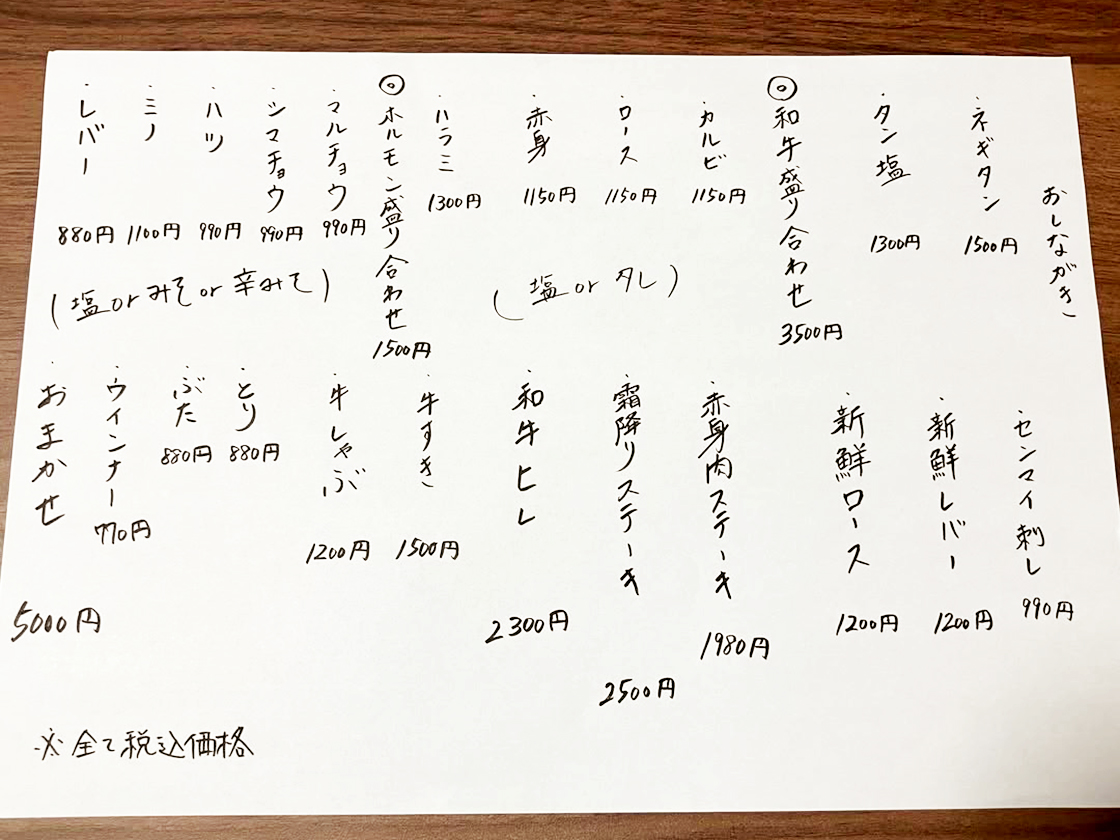 おしながき
・ネギタン 1500円
・タン塩 1300円
◎和牛盛り合わせ 3500円
・カルビ 1150円
・ロース 1150円
・赤身 1150円
・ハラミ 1300円
(塩 or タレ)
◎ホルモン盛り合わせ 1500円
・マルチョウ 990円
・シマチョウ 990円
・ハツ 990円
・ミノ 1100円
・レバー 880円
(塩 or みそ or 辛みそ)
・センマイ刺し 990円
・新鮮レバー 1200円
・新鮮ロース 1200円
・赤身肉ステーキ 1980円
・霜降りステーキ 2500円
・和牛ヒレ 2300円
・牛すき 1500円
・牛しゃぶ 1200円
・とり 880円
・ぶた 880円
・ウインナー 770円
・おまかせ 5000円
※全て税込価格